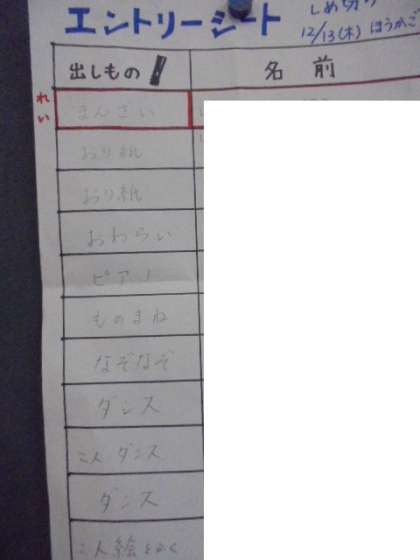 エントリーシート
しめ切り
12/13(木)ほうかご
出しもの! 名前
れい まんざい
おり紙
おり紙
おわらい
ピアノ
ものまね
なぞなぞ
ダンス
ダンス
ダンス
二人絵をかく